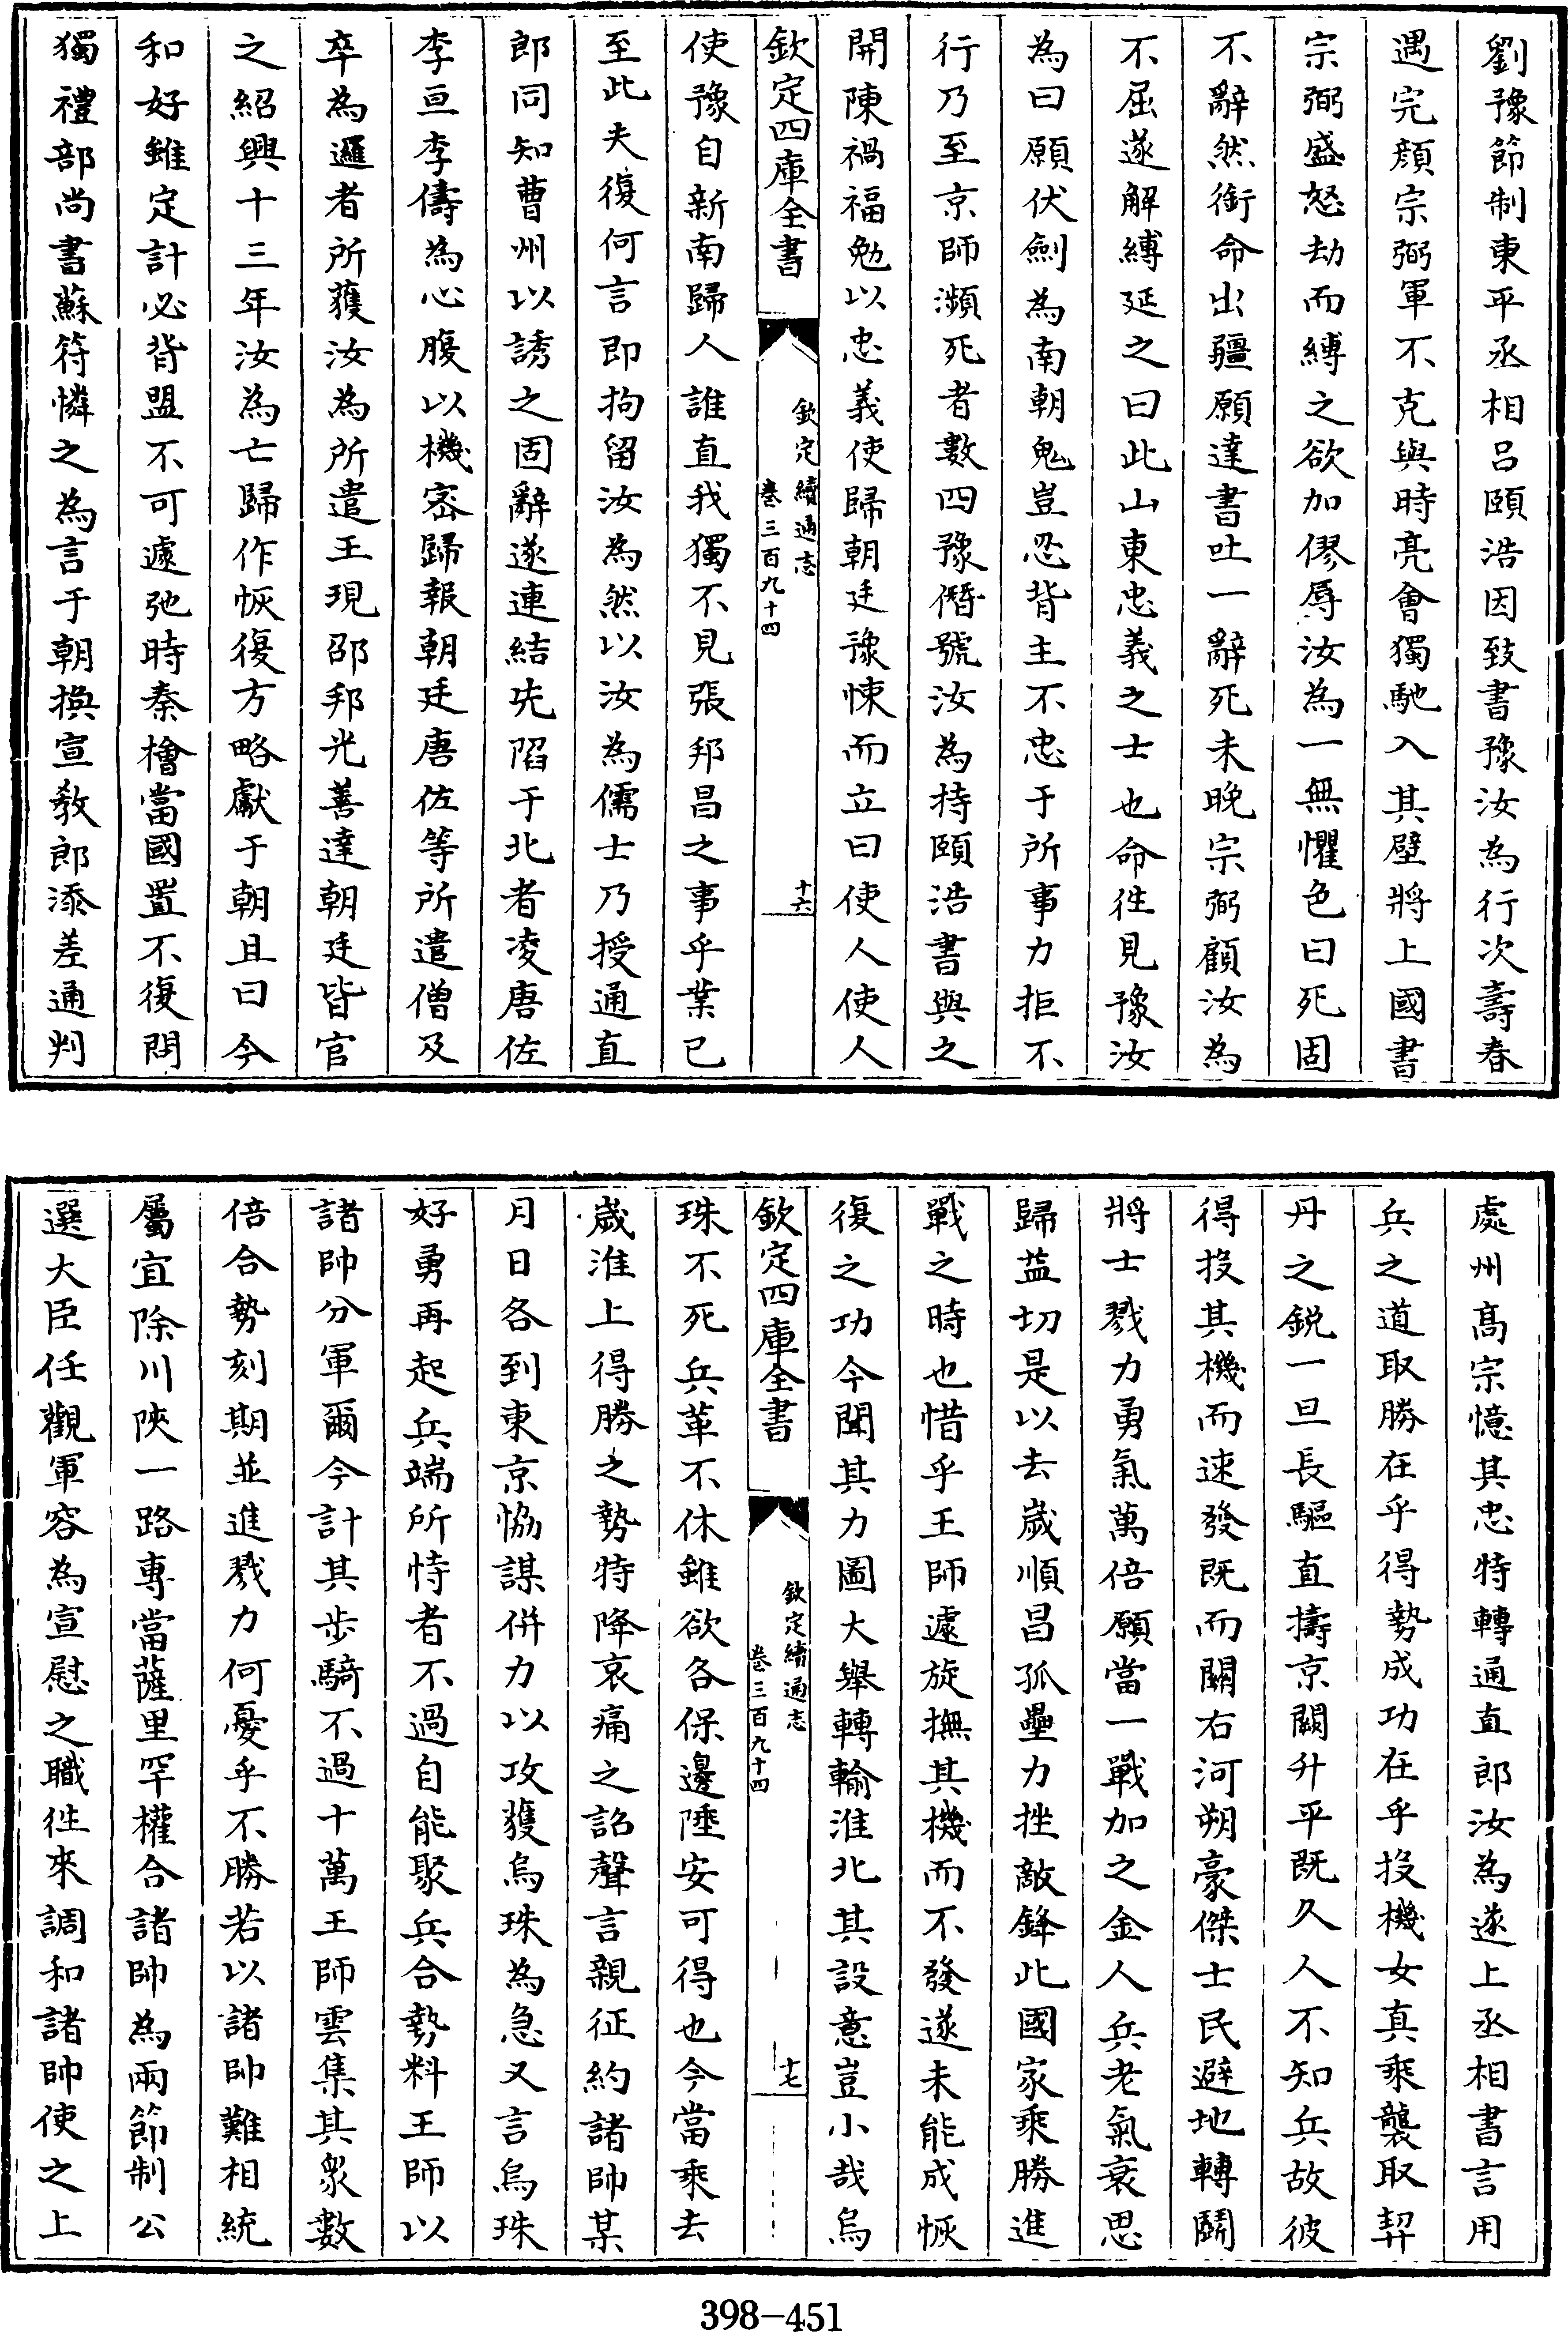 劉豫節制東平丞相呂頤浩因致書豫汝為行次壽春
遇完顔宗弼軍不克與時亮會獨馳入其壁將上國書
宗弼盛怒劫而縛之欲加僇辱汝為一無懼色曰死固
不辭然銜命出疆願達書吐一辭死未晚宗弼顧汝為
不屈遂解縛延之曰此山東忠義之士也命徃見豫汝
為曰願伏劍為南朝鬼豈忍背主不忠于所事力拒不
行乃至京師瀕死者數四豫僭號汝為持頤浩書與之
開陳禍福勉以忠義使歸朝廷豫悚而立曰使人使人
欽定四庫全書
欽定續通志
卷三百九十四
十六
使豫自新南歸人誰直我獨不見張邦昌之事乎業已
至此夫復何言即拘留汝為然以汝為儒士乃授通直
郎同知曹州以誘之固辭遂連結先陷于北者凌唐佐
李亘李儔為心腹以機密歸報朝廷唐佐等所遣僧及
卒為邏者所獲汝為所遣王現邵邦光善達朝廷皆官
之紹興十三年汝為亡歸作恢復方略獻于朝且曰今
和好雖定計必背盟不可遽弛時秦檜當國置不復問
獨禮部尚書蘇符憐之為言于朝換宣教郎添差通判
處州髙宗憶其忠特轉通直郎汝為遂上丞相書言用
兵之道取勝在乎得勢成功在乎投機女真乘襲取契
丹之鋭一旦長驅直擣京闕升平既久人不知兵故彼
得投其機而速發既而關右河朔豪傑士民避地轉鬭
將士戮力勇氣萬倍願當一戰加之金人兵老氣衰思
歸益切是以去歲順昌孤壘力挫敵鋒此國家乘勝進
戰之時也惜乎王師遽旋撫其機而不發遂未能成恢
復之功今聞其力圖大舉轉輸淮北其設意豈小哉烏
欽定四庫全書
欽定續通志
卷三百九十四
十七
珠不死兵革不休雖欲各保邊陲安可得也今當乘去
歲淮上得勝之勢特降哀痛之詔聲言親征約諸帥某
月日各到東京恊謀併力以攻獲烏珠為急又言烏珠
好勇再起兵端所恃者不過自能聚兵合勢料王師以
諸帥分軍爾今計其步騎不過十萬王師雲集其衆數
倍合勢刻期並進戮力何憂乎不勝若以諸帥難相統
屬宜除川陜一路專當薩里罕權合諸帥為兩節制公
選大臣任觀軍容為宣慰之職徃來調和諸帥使之上
398-451